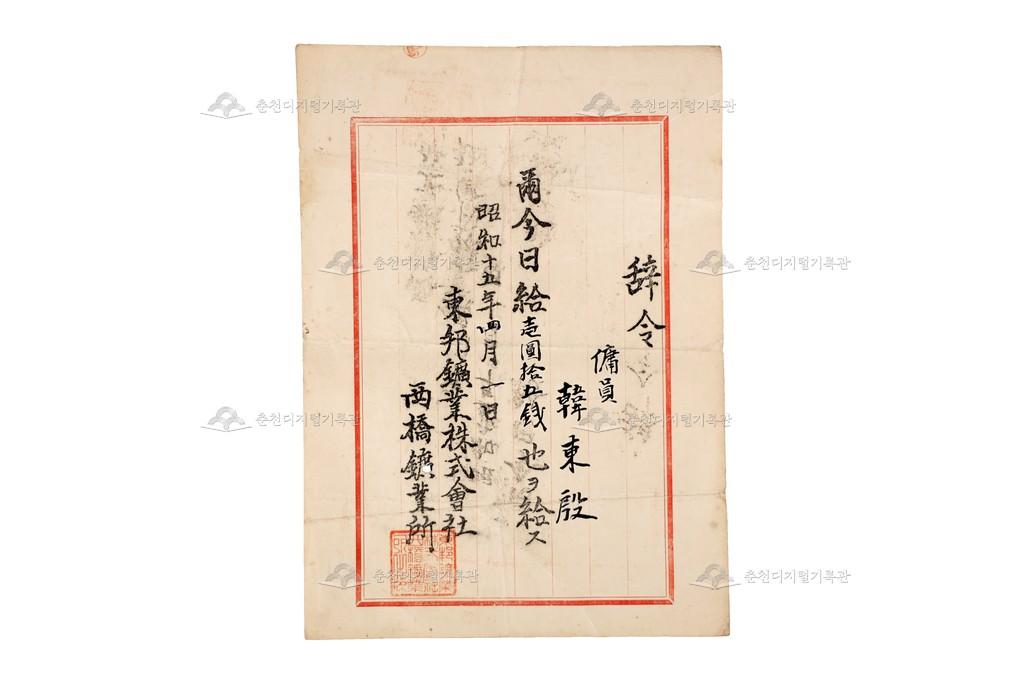 辞令
傭員
韓東殷
爾今日給壱圓拾五銭也ヲ給ス
昭和十五年四月一日
東邦鑛業株式會社
西橋鑛業所
춘천디지털기록관
춘천디지털기록관
춘천디지털기록관
춘천디지털기록관
춘천디지털기록관
춘천디지털기록관
춘천디지털기록관
춘천디지털기록관